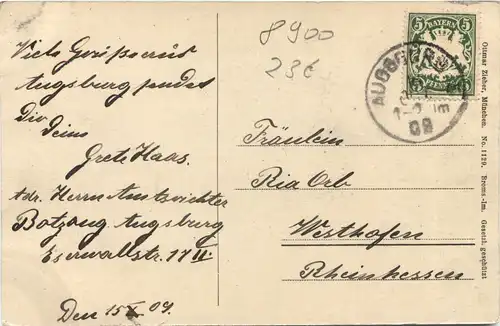 Viele Grüße aus
Augsburg sendet
Dir
Deine
Grete Haas.
Adr. Herrn Amtsrichter
Botzong Augsburg
Eserwallstr. 17 II.
Den 15.X 09.
8900
23€
5 BAYERN 5
AUGSBURG
09
Fräulein
Ria Orb
Westhofen
Rheinhessen
Ottmar Zieher, München. No. 1129. Broms.-Im. Gesetzl. geschützt